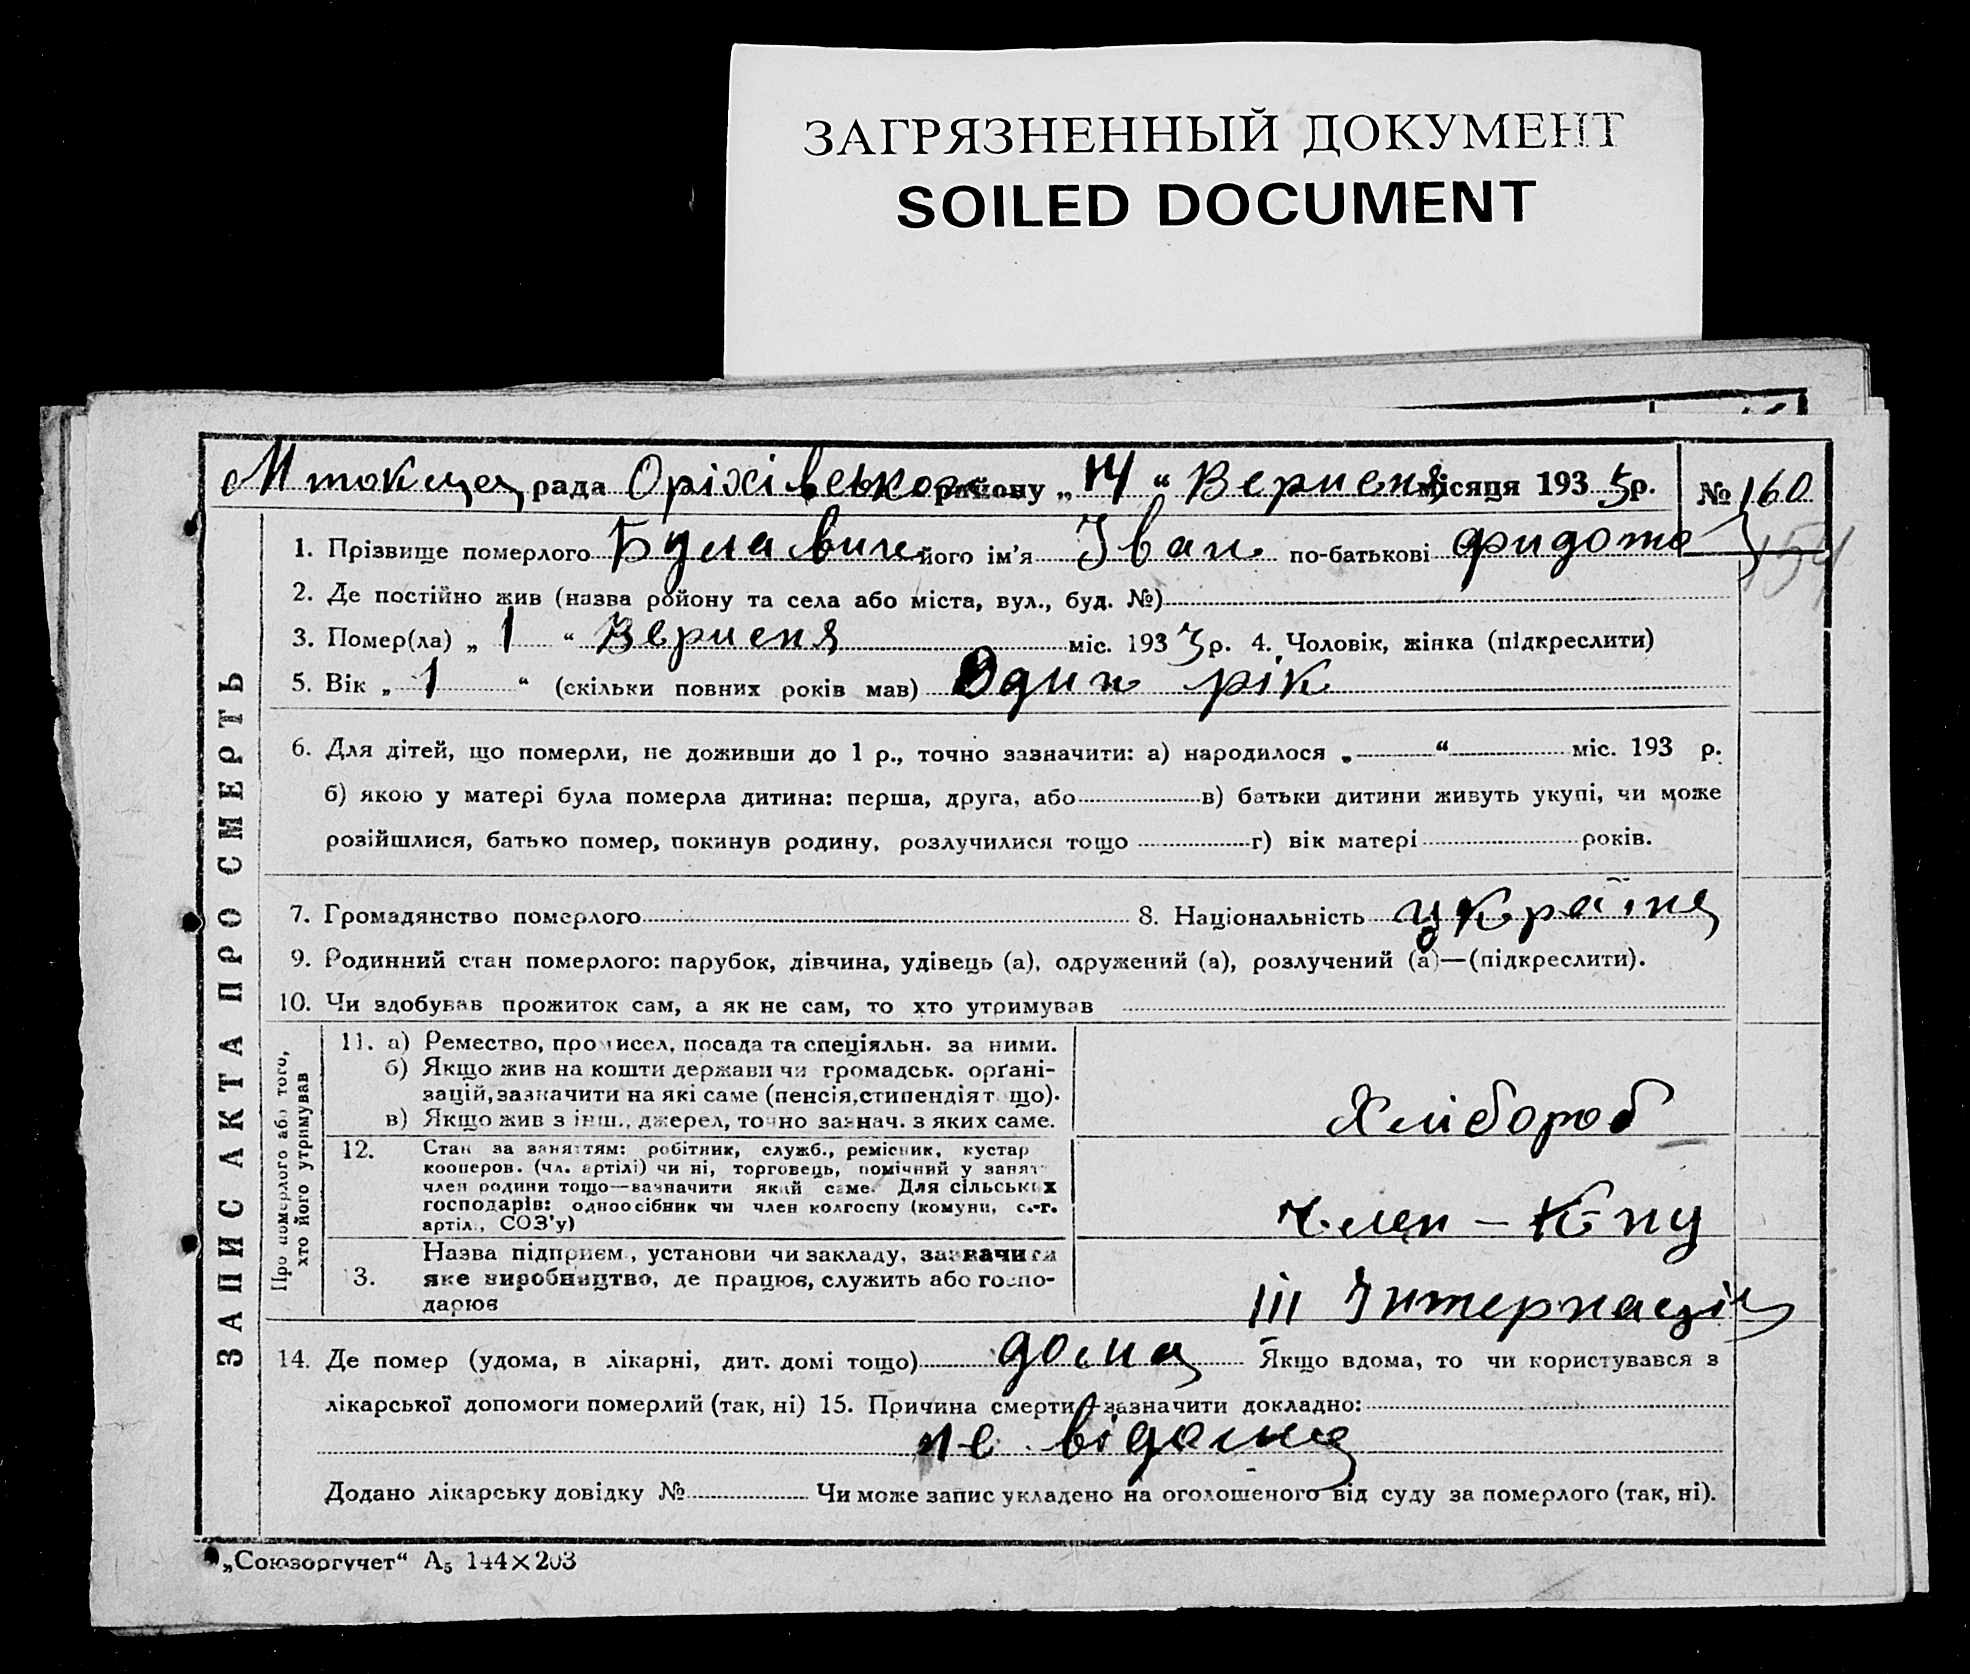 ЗАГРЯЗНЕННЫЙ ДОКУМЕНТ
SOILED DOCUMENT
рада Оріхівського району „14“ Верненя місяця 193 р. № 160
154
1. Прізвище померлого Булавин його ім'я Іван по-батькові Фидото
2. Де постійно жив (назва району та села або міста, вул., буд. №)
3. Помер(ла) „1“ Верненя міс. 1933 р. 4. Чоловік, жінка (підкреслити)
5. Вік „1“ (скільки повних років мав) Один рік
6. Для дітей, що померли, не доживши до 1 р., точно зазначити: а) народилося „ “ міс. 193 р.
б) якою у матері була померла дитина: перша, друга, або в) батьки дитини живуть укупі, чи може
розійшлися, батько помер, покинув родину, розлучилися тощо г) вік матері років.
7. Громадянство померлого 8. Національність україна
9. Родинний стан померлого: парубок, дівчина, удівець (а), одружений (а), розлучений (а)—(підкреслити).
10. Чи здобував прожиток сам, а як не сам, то хто утримував
ЗАПИС АКТА ПРО СМЕРТЬ
Про померлого або того,
хто його утримував
11. а) Ремество, промисел, посада та спеціяльн. за ними.
б) Якщо жив на кошти держави чи громадськ. орґані-
зацій, зазначити на які саме (пенсія, стипендія т що).
в) Якщо жив з інш., джерел, точно зазнач. з яких саме.
Хлібороб
12. Стан за заняттям: робітник, служб., ремісник, кустар
кооперов. (чл. артілі) чи ні, торговець, помічний у занят
член родини тощо—зазначити який саме. Для сільських
господарів: одноосібник чи член колгоспу (комуни, с.-г.
артіл., СОЗ'у)
Член – К-пу
13. Назва підприєм., установи чи закладу, зазначити
яке виробництво, де працює, служить або госпо-
дарює
III Інтернаціи
14. Де помер (удома, в лікарні, дит. домі тощо) дома Якщо вдома, то чи користувався з
лікарської допомоги померлий (так, ні) 15. Причина смерти, зазначити докладно:
не відома
Додано лікарську довідку № Чи може запис укладено на оголошеного від суду за померлого (так, ні).
„Союзоргучет“ А5 144×203